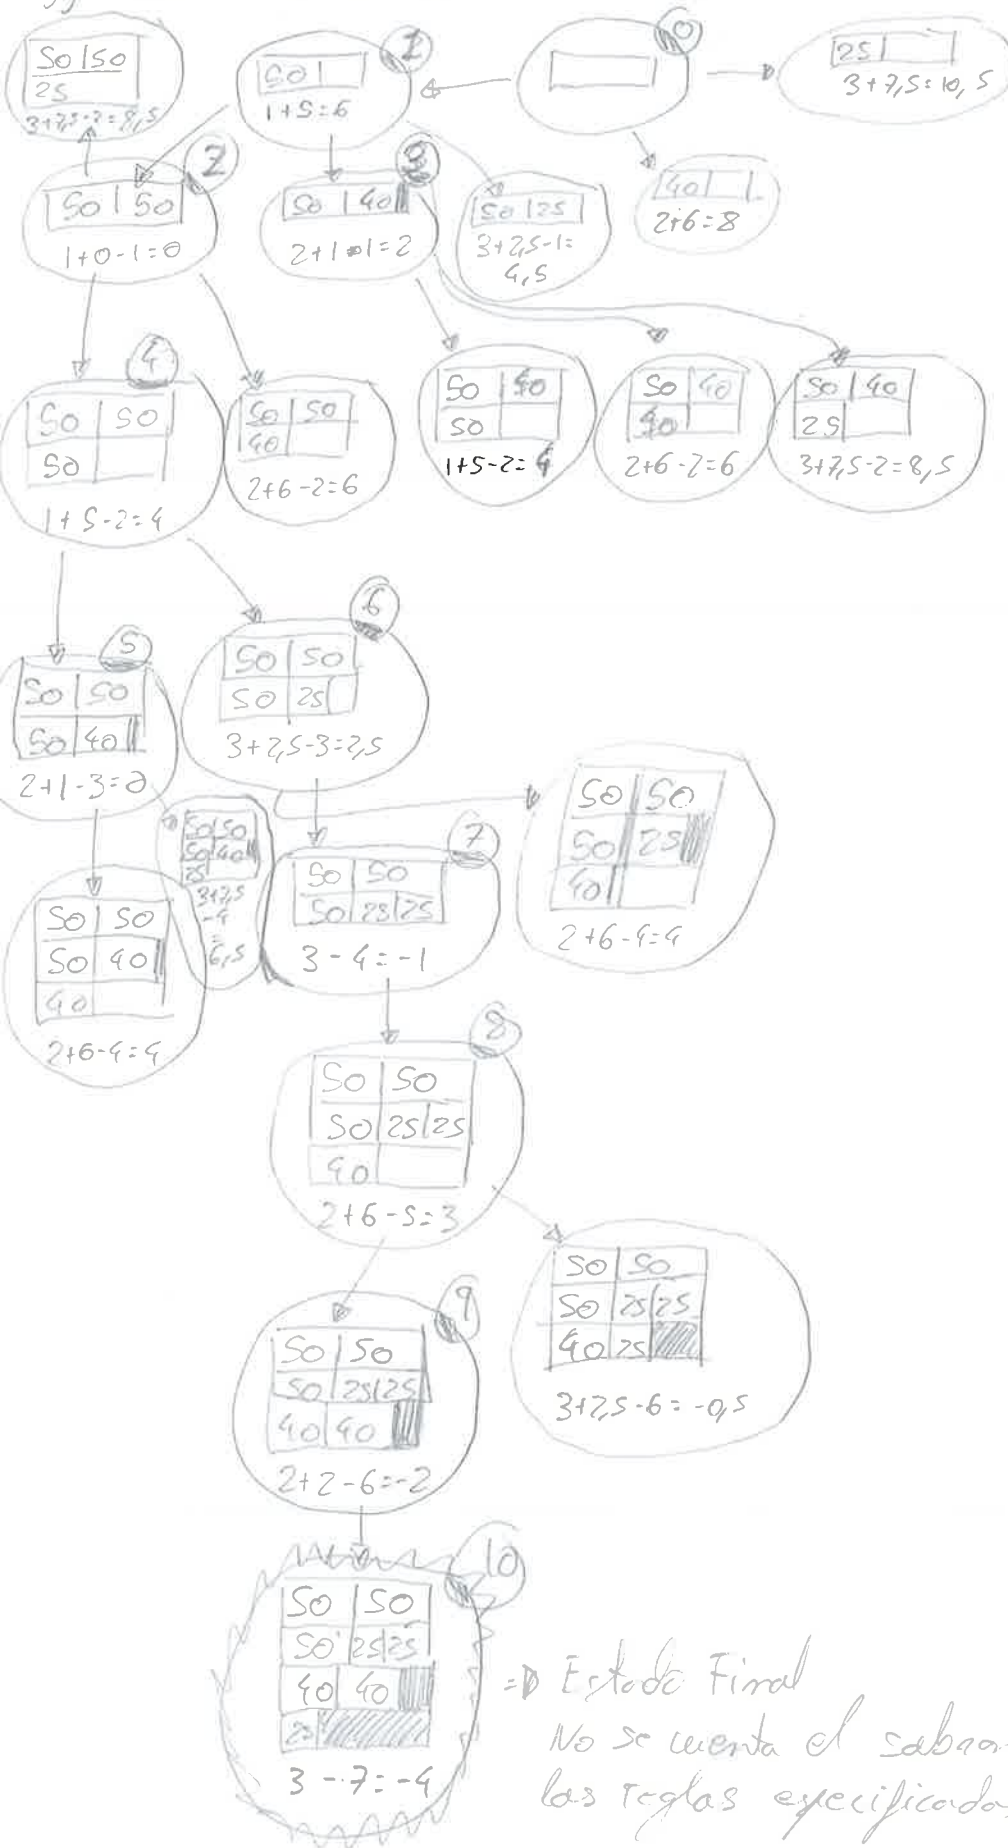 50 | 50
25
3+7,5-2=8,5
1
50 |
1+5=6
0
25 |
3+7,5=10,5
2
50 | 50
1+0-1=0
3
50 | 40
2+1-1=2
50 | 25
3+2,5-1=
4,5
40 |
2+6=8
4
50 | 50
50 |
1+5-2=4
50 | 50
40 |
2+6-2=6
50 | 40
50 |
1+5-2=4
50 | 40
40 |
2+6-2=6
50 | 40
25 |
3+7,5-2=8,5
5
50 | 50
50 | 40
2+1-3=0
6
50 | 50
50 | 25
3+2,5-3=2,5
50 | 50
50 | 40
25
3+7,5
-4
=
6,5
7
50 | 50
50 | 25 | 25
3-4=-1
50 | 50
50 | 25
40 |
2+6-4=4
50 | 50
50 | 40
40 |
2+6-4=4
8
50 | 50
50 | 25 | 25
40 |
2+6-5=3
9
50 | 50
50 | 25 | 25
40 | 40
2+2-6=-2
50 | 50
50 | 25 | 25
40 | 25
3+2,5-6=-0,5
10
50 | 50
50 | 25 | 25
40 | 40
25
3-7=-4
=> Estado Final
No se cuenta el
las reglas